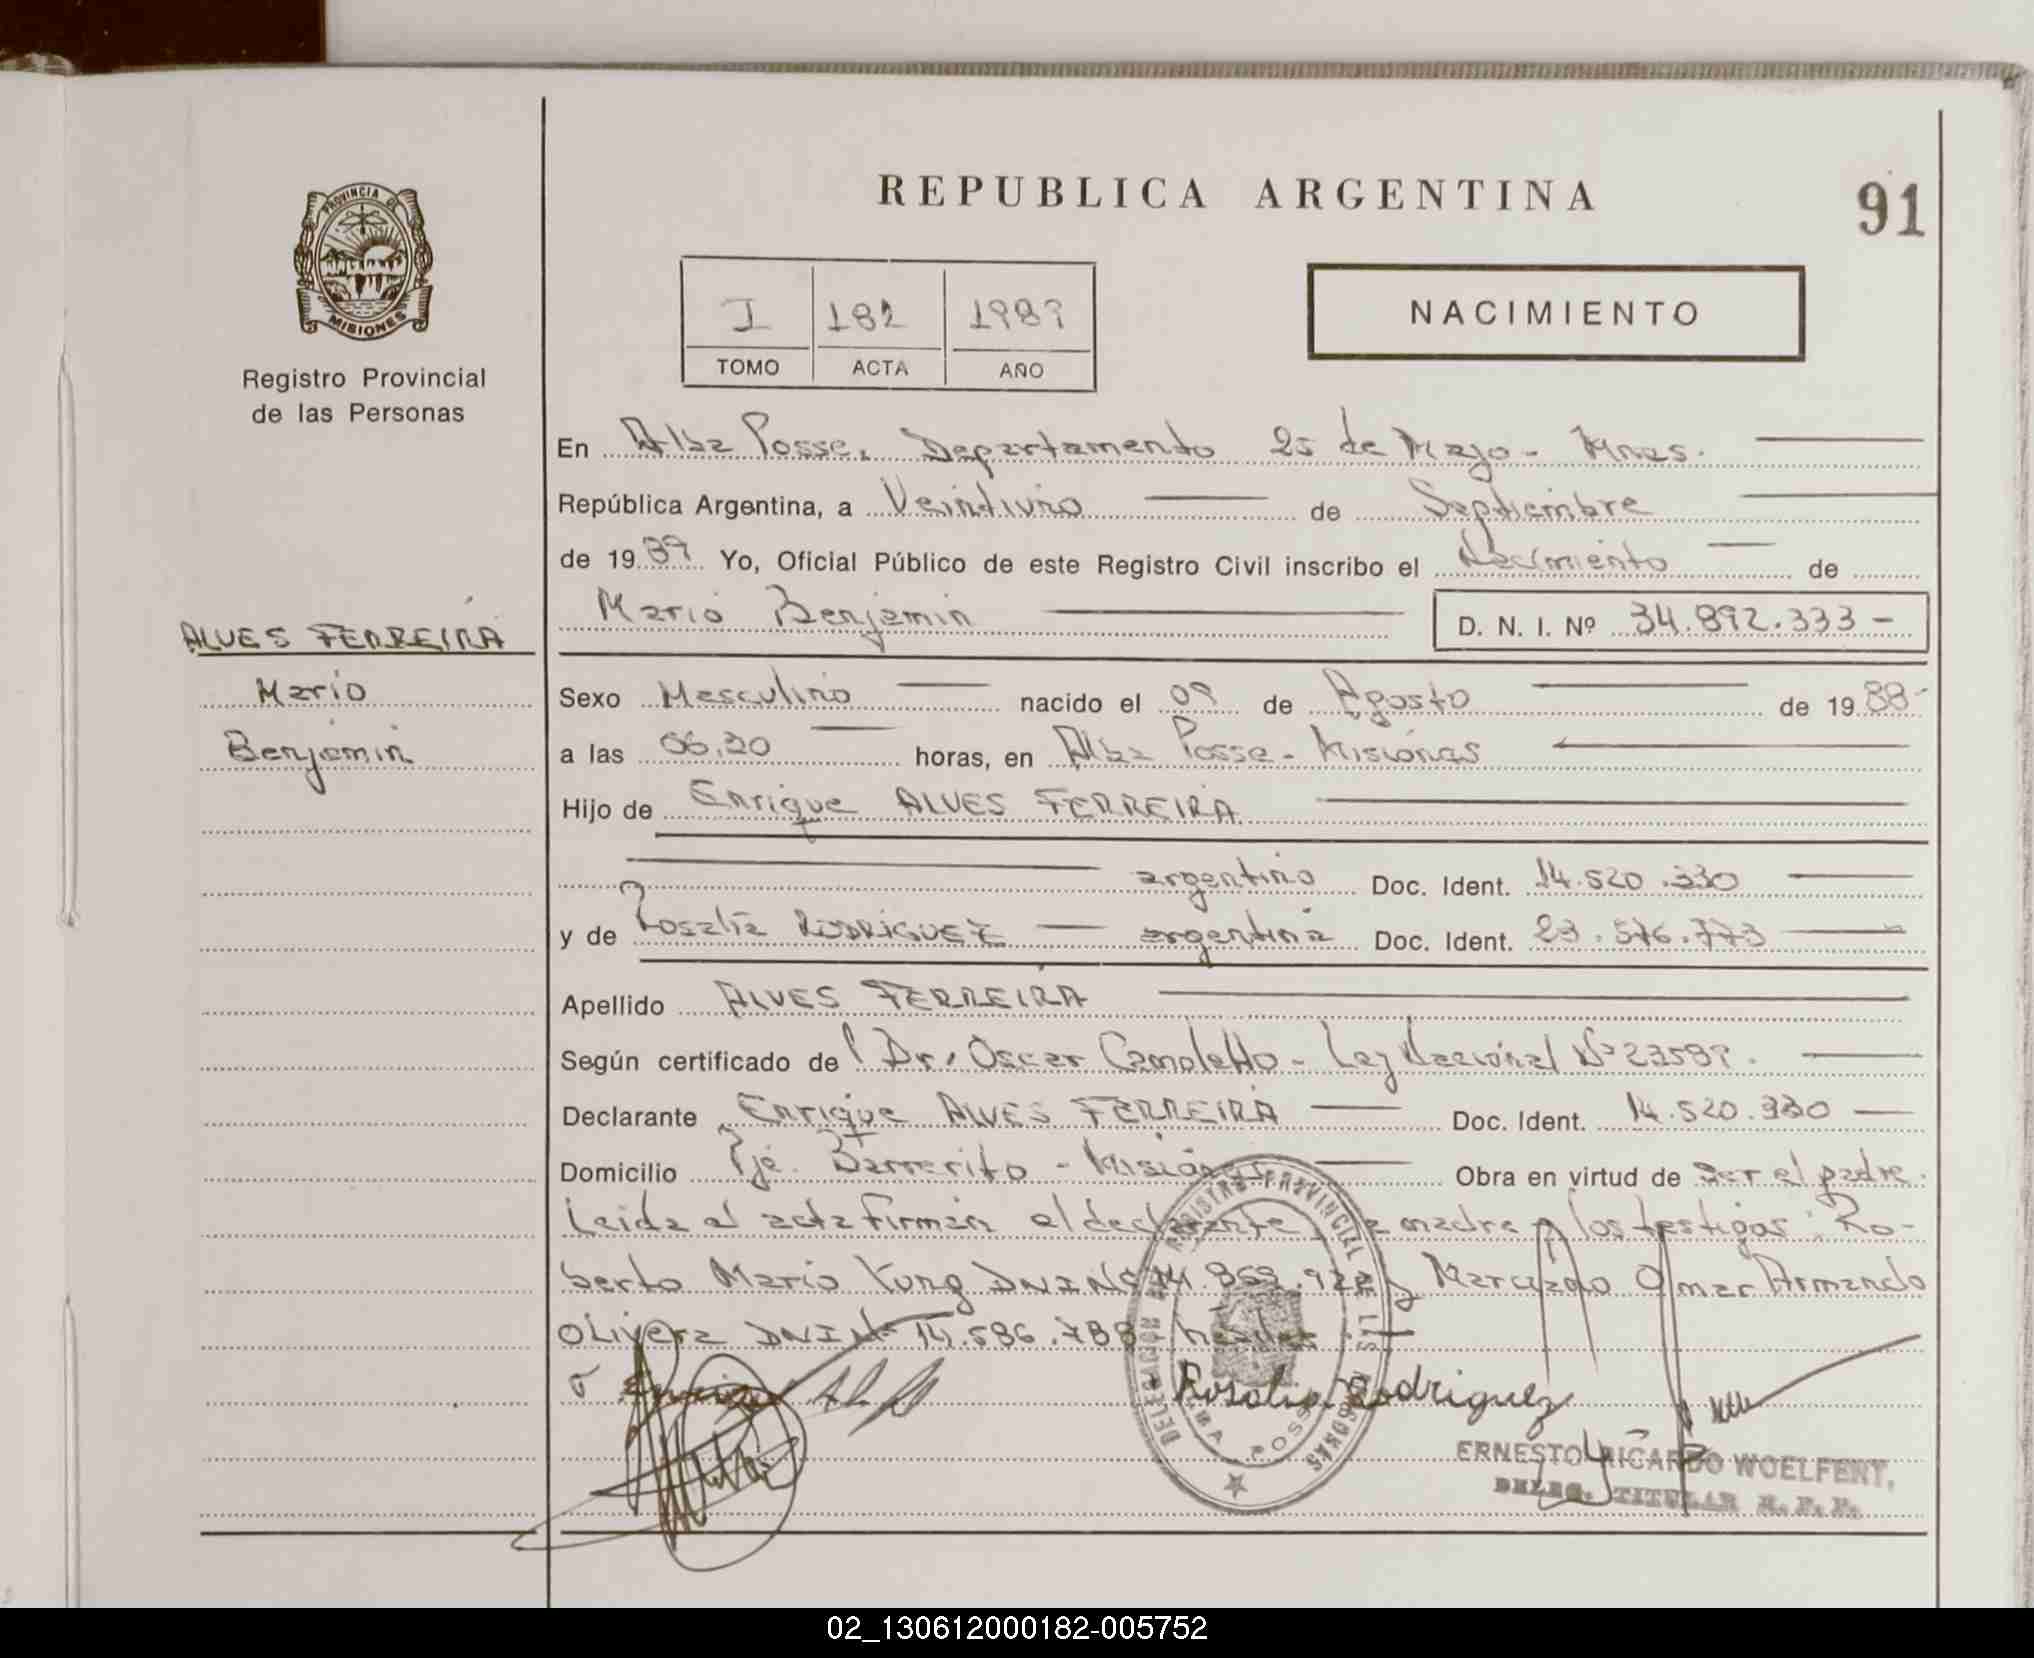 REPUBLICA ARGENTINA
91
PROVINCIA DE
MISIONES
Registro Provincial
de las Personas
I 182 1989
TOMO ACTA AÑO
NACIMIENTO
En Alba Posse, Departamento 25 de Mayo - Mnes.
República Argentina, a Veintiuno de Septiembre
de 1989 Yo, Oficial Público de este Registro Civil inscribo el Nacimiento de
Mario Benjamin D. N. I. Nº 34.892.333 -
ALVES FERREIRA
Mario
Benjamin
Sexo Masculino nacido el 09 de Agosto de 1988-
a las 06,20 horas, en Alba Posse - Misiones
Hijo de Enrique ALVES FERREIRA
argentino Doc. Ident. 14.520.330
y de Rosalía RODRIGUEZ argentina Doc. Ident. 23.576.773
Apellido ALVES FERREIRA
Según certificado de Dr. Oscar - Ley Nacional Nº
Declarante Enrique ALVES FERREIRA Doc. Ident. 14.520.330
Domicilio Pje. Barrerito - Misiones Obra en virtud de ser el padre.
Leida el acta firman el declarante la madre y los testigos: Ro-
berto Mario Kung DNI Nº y Omar Armando
Olivera DNI Nº 14.586.788
Rosalia Rodriguez
REGISTRO PROVINCIAL DE LAS PERSONAS
DELEGACION
ALBA POSSE
ERNESTO RICARDO WOELFERT,
DELEG. TITULAR R. P. P.
02_130612000182-005752